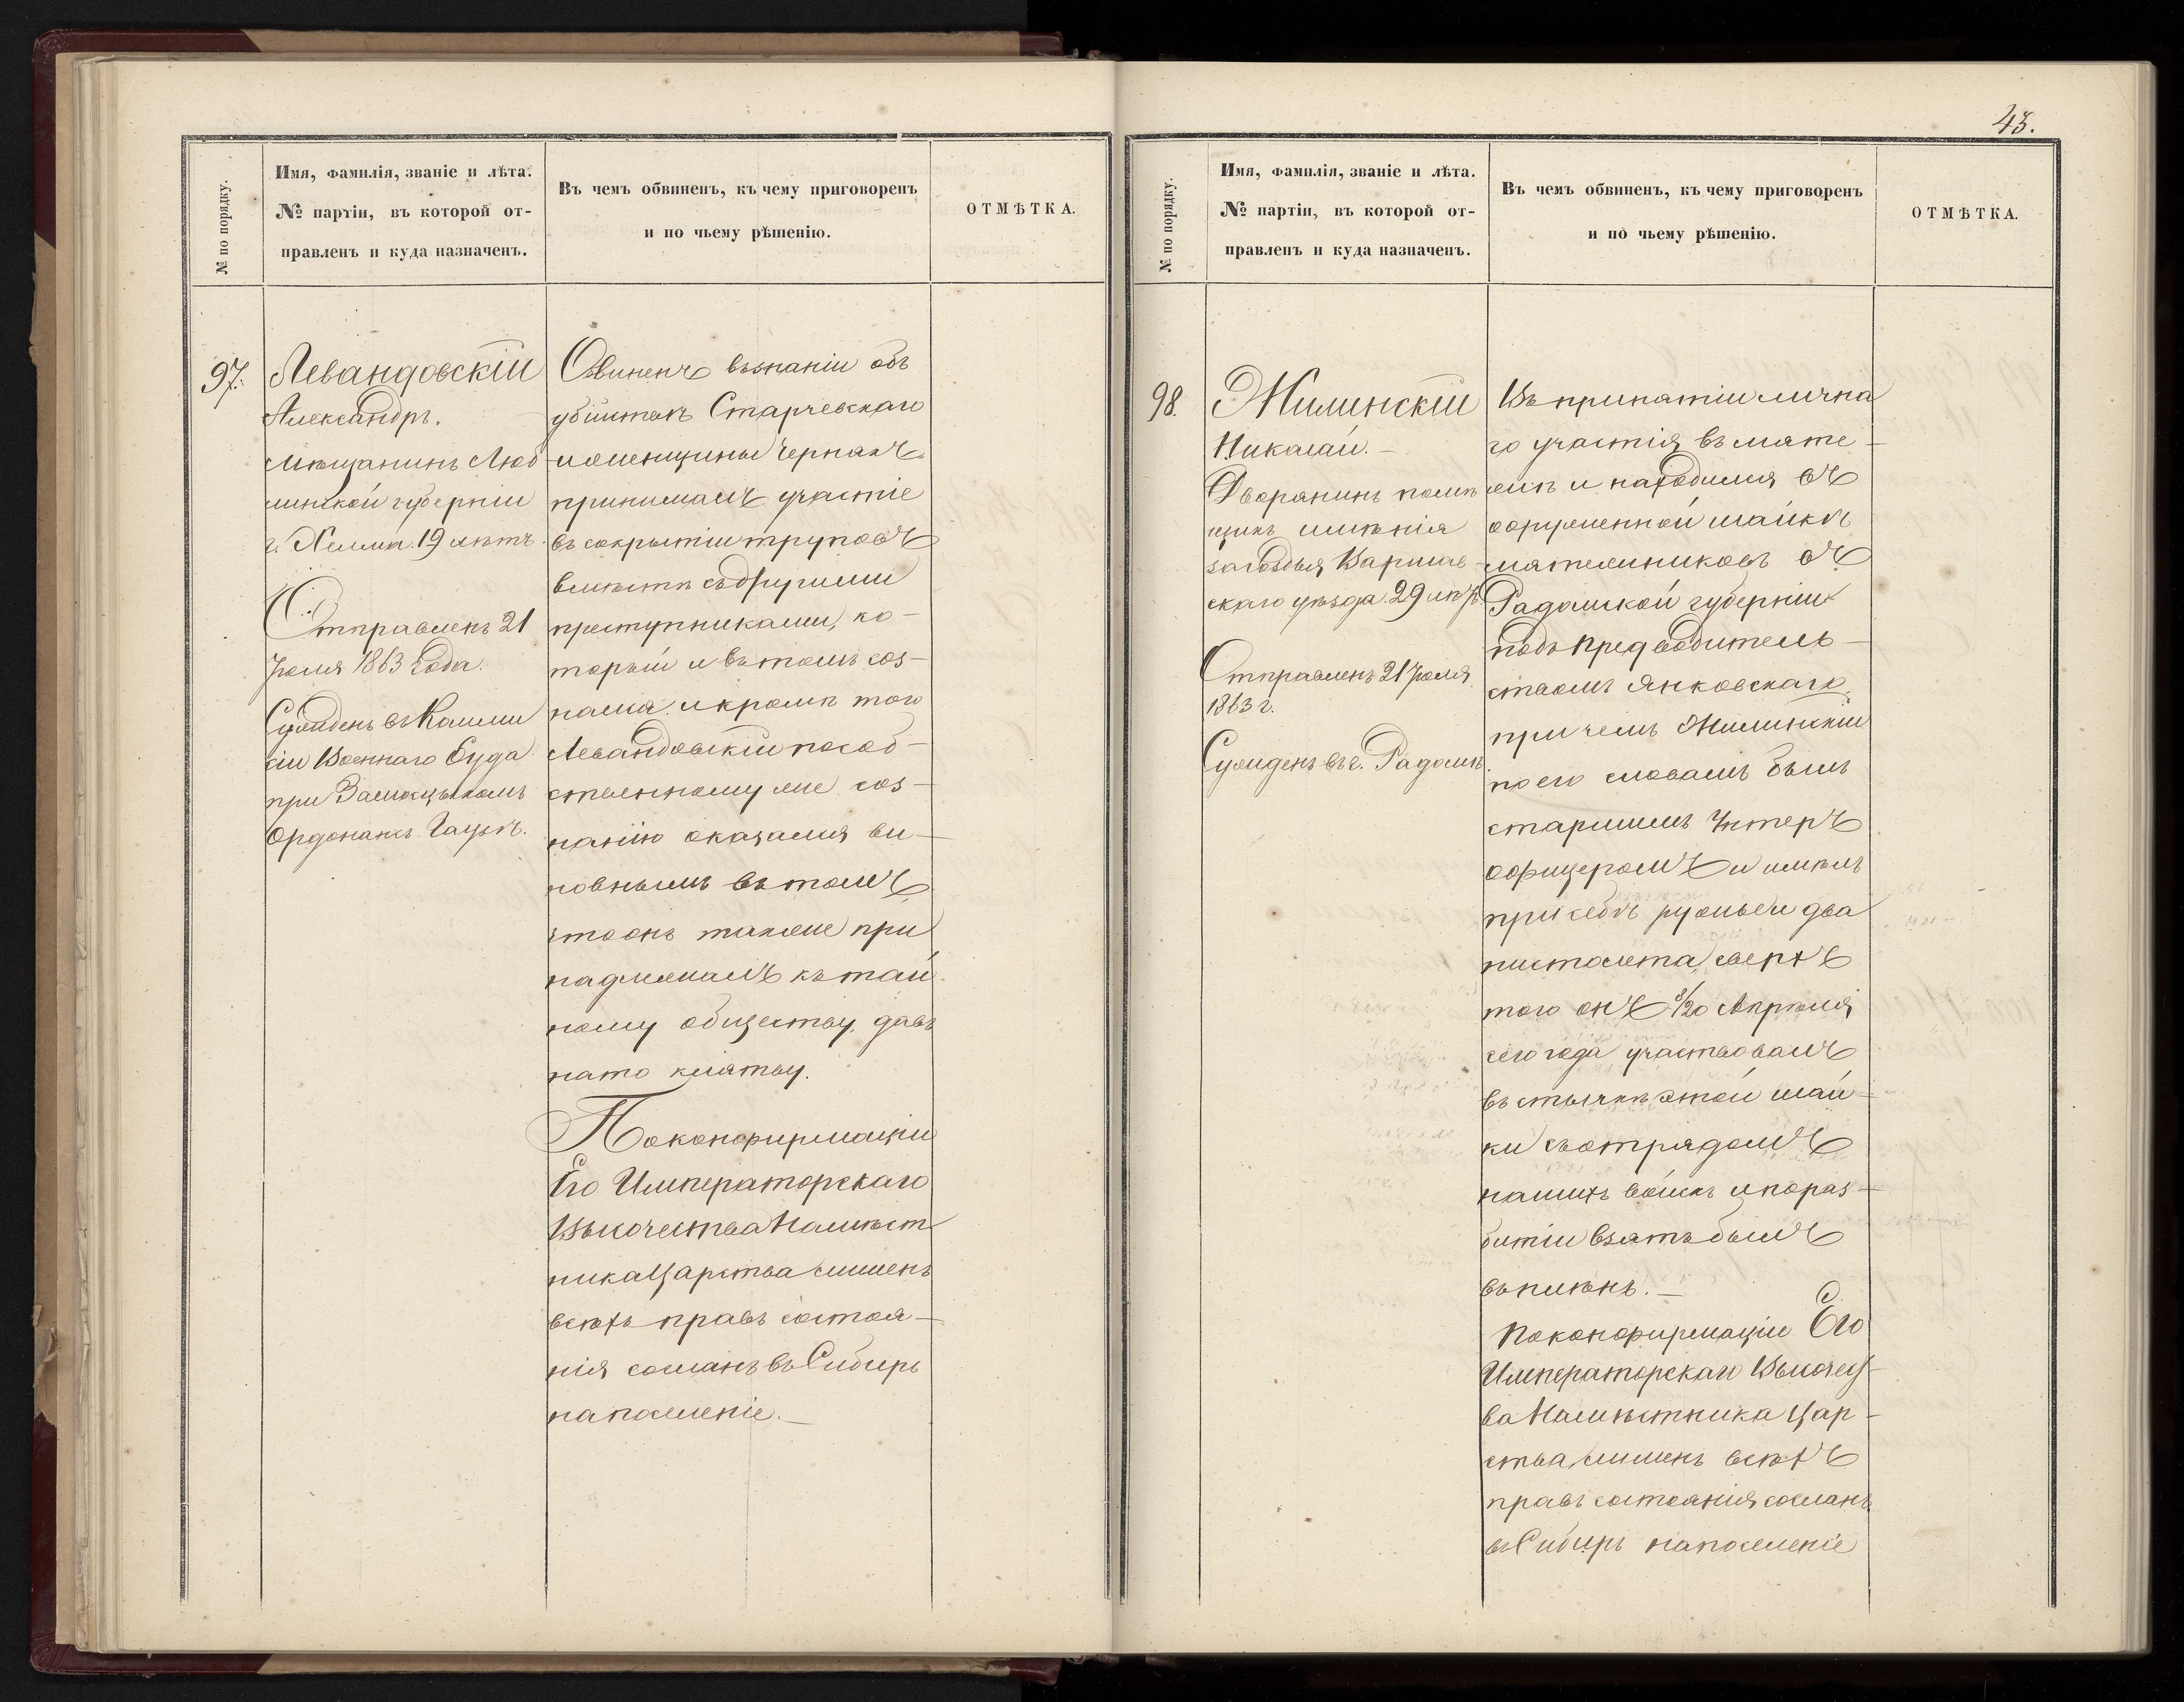 43.
№ по порядку.
Имя, фамилія, званіе и лѣта.
№ партіи, въ которой от-
правленъ и куда назначенъ.
Въ чемъ обвиненъ, къ чему приговоренъ
и по чьему рѣшенію.
ОТМѢТКА.
97.
Левандовскій
Александръ.
Мѣщанинъ Люб-
линской губерніи
г. Хелма. 19 лѣтъ.
Отправленъ 21
Іюля 1863 года.
Сужденъ въ Комми
сіи Военнаго Суда
при Замосцьскомъ
Ордонансъ Гаузѣ.
Обвиненъ въ знаніи объ
убійствѣ Старчевскаго
и женщины Чернакъ
принималъ участіе
въ сокрытіи труповъ
вмѣстѣ съ другими
преступниками, ко-
торый и въ томъ соз-
нался. и кромѣ того
Левандовскій по соб-
ственному же соз-
нанію оказался ви-
новнымъ въ томъ
что онъ также при
надлежалъ къ тай
ному обществу, давъ
на то клятву.
По конфирмаціи
Его Императорскаго
Высочества Намѣст
ника Царства лишенъ
всѣхъ правъ состоя-
нія сосланъ въ Сибирь
на поселеніе.
№ по порядку.
Имя, фамилія, званіе и лѣта.
№ партіи, въ которой от-
правленъ и куда назначенъ.
Въ чемъ обвиненъ, къ чему приговоренъ
и по чьему рѣшенію.
ОТМѢТКА.
98.
Жилинскій
Николай.
Дворянинъ помѣ
щикъ имѣнія
Варшав-
скаго уѣзда. 29 лѣтъ
Отправленъ 21 Іюля
1863 г.
Сужденъ въ г. Радомѣ
Въ принятіи лична
го участія въ мяте-
жѣ и находился въ
вооруженной шайкѣ
мятежниковъ въ
Радомской губерніи
подъ предводитель-
ствомъ Янковскаго,
при чемъ Жилинскій
по его словамъ былъ
старшимъ Унтеръ
офицеромъ и имѣлъ
при себѣ ружье и два
пистолета, сверхъ
того онъ 8/20 Апрѣля
сего года участвовалъ
въ стычкѣ этой шай-
ки съ отрядомъ
нашихъ войскъ и по раз-
битіи взятъ былъ
въ плѣнъ.
По конфирмаціи Его
Императорскаго Высочест-
ва Намѣстника Цар-
ства, лишенъ всѣхъ
правъ состоянія сосланъ
въ Сибирь на поселеніе